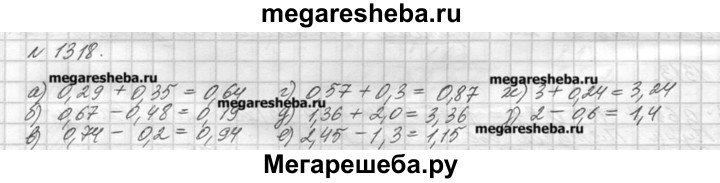 megaresheba.ru
№ 1318.
а) 0,29 + 0,35 = 0,64 г) 0,57 + 0,3 = 0,87 ж) 3 + 0,24 = 3,24
megaresheba.ru megaresheba.ru
б) 0,67 - 0,48 = 0,19 д) 1,36 + 2,0 = 3,36 з) 2 - 0,6 = 1,4
megaresheba.ru megaresheba.ru
в) 0,74 - 0,2 = 0,94 е) 2,45 - 1,3 = 1,15
Мегарешеба.ру